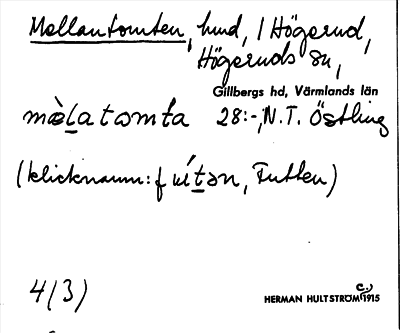 Mellantomten, hmd, i Högerud,
Högeruds sn,
Gillbergs hd, Värmlands län
mèlatomta 28:-, N.T. Östling
(klicknamn: Futten)
4(3)
HERMAN HULTSTRÖM C:a 1915